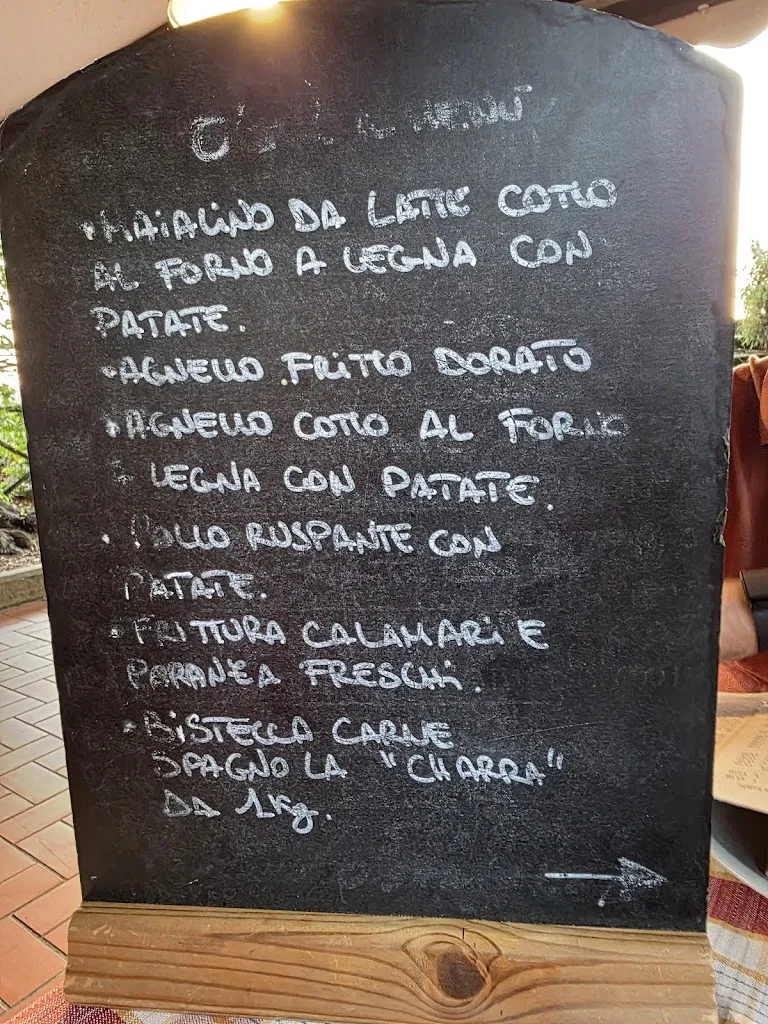 MENÙ
• MAIALINO DA LATTE COTTO
AL FORNO A LEGNA CON
PATATE.
• AGNELLO FRITTO DORATO
• AGNELLO COTTO AL FORNO
LEGNA CON PATATE.
• POLLO RUSPANTE CON
PATATE.
• FRITTURA CALAMARI E
PARANZA FRESCHI.
• BISTECCA CARNE
SPAGNOLA "CHARRA"
DA 1Kg.